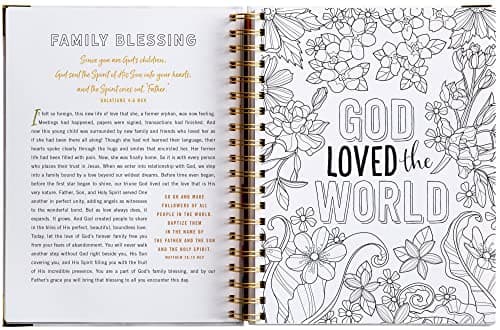 FAMILY BLESSING
Since you are God's children,
God sent the Spirit of His Son into your hearts,
and the Spirit cries out, "Father."
GALATIANS 4:6 NCV
It felt so foreign, this new life of love that she, a former orphan, was now feeling.
Meetings had happened, papers were signed, transactions had finished. And
now this young child was surrounded by new family and friends who loved her as
if she had been there all along! Though she had not learned their language, their
hearts spoke clearly through the hugs and smiles that encircled her. Her former
life had been filled with pain. Now, she was finally home. So it is with every person
who places their trust in Jesus. When we enter into relationship with God, we step
into a family bound by a love beyond our wildest dreams. Before time even began,
before the first star began to shine, our triune God lived out the love that is His
very nature. Father, Son, and Holy Spirit served One
another in perfect unity, adding angels as witnesses
to the wonderful bond. But as love always does, it
expands. It grows. And God created people to share
in the bliss of His perfect, beautiful, boundless love.
Today, let the love of God's forever family free you
from your fears of abandonment. You will never walk
another step without God right beside you, His Son
covering you, and His Spirit filling you with the fruit
of His incredible presence. You are a part of God's family blessing, and by our
Father's grace you will bring that blessing to all you encounter this day.
SO GO AND MAKE
FOLLOWERS OF ALL
PEOPLE IN THE WORLD.
BAPTIZE THEM
IN THE NAME OF
THE FATHER AND THE SON
AND THE HOLY SPIRIT.
MATTHEW 28:19 NCV
GOD
LOVED the
WORLD